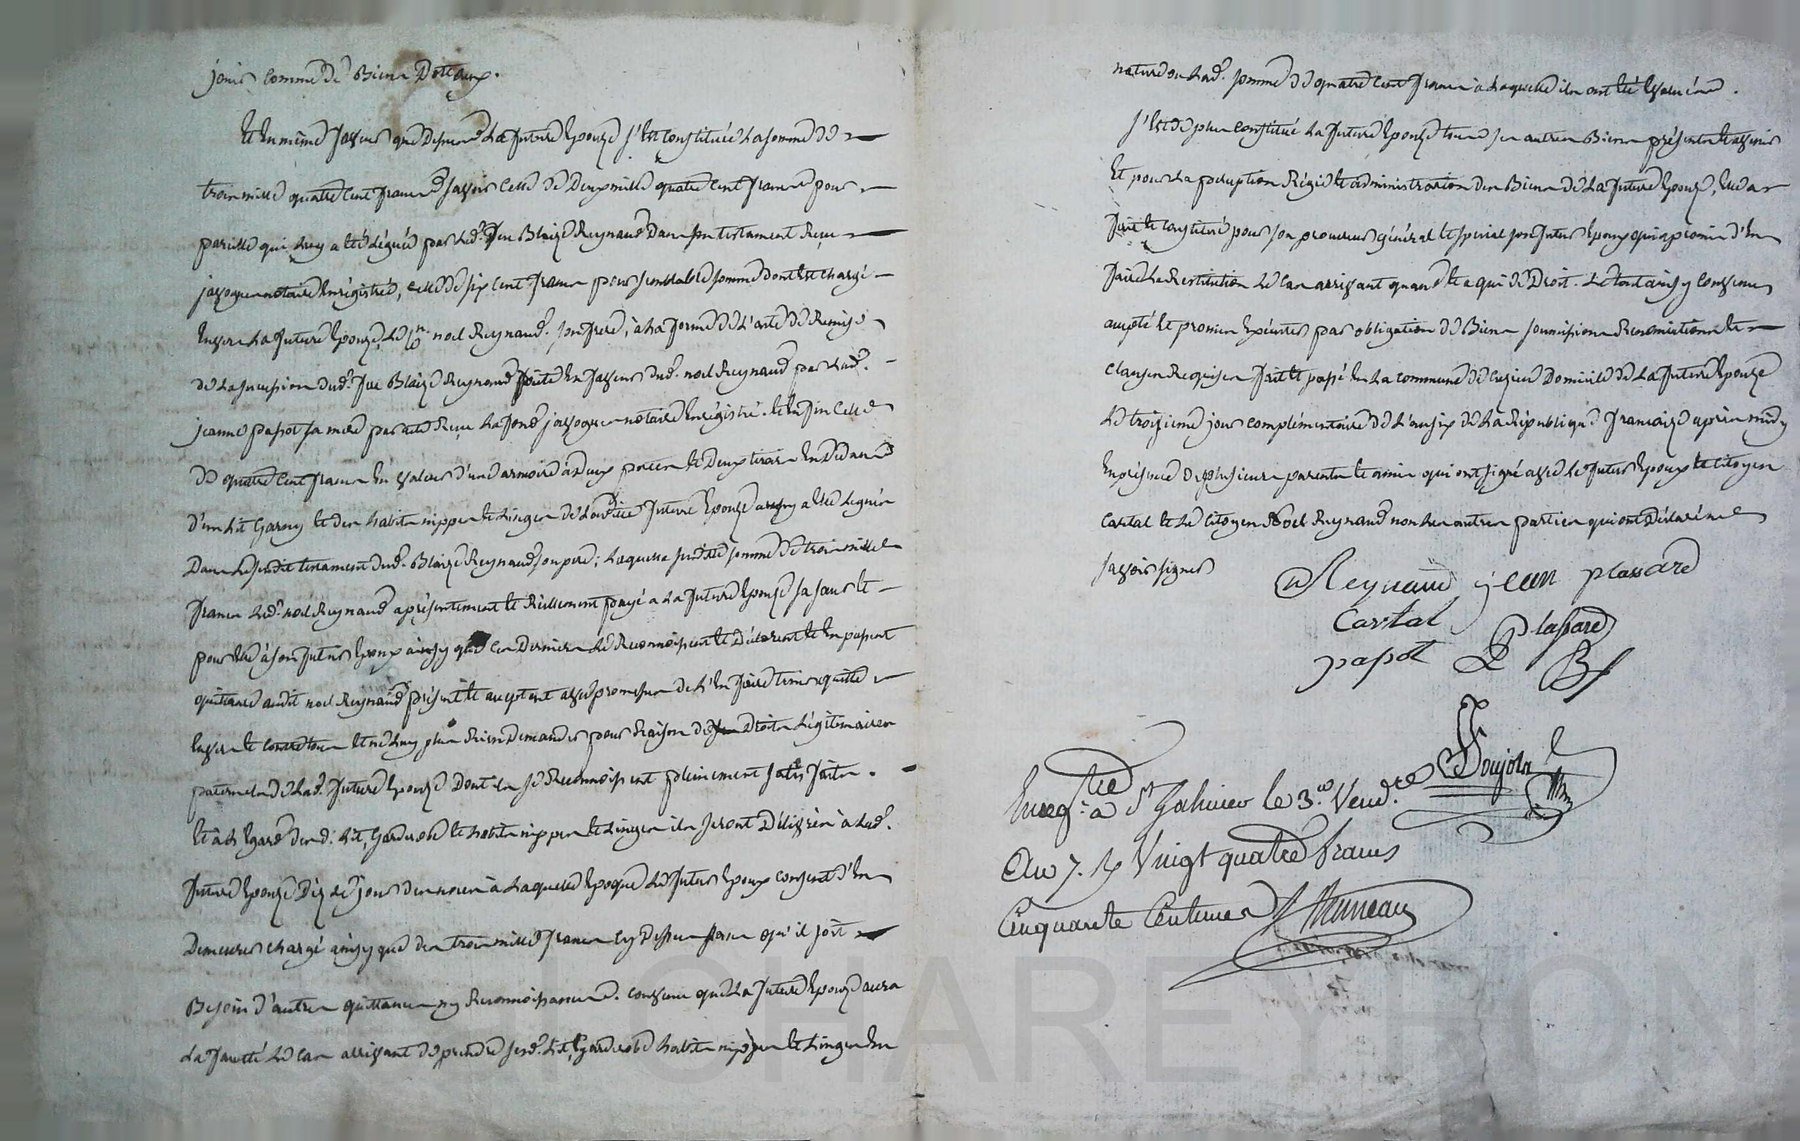 jouir comme de Biens Dotaux.
et en même faveur que Dessus La future Epouze s'est Constituée La somme de
trois mille quatre Cent francs sçavoir Celle de Deux mille quatre Cent francs pour
pareille qui Luy a été Léguée par Led. feu Blaize Reynaud Dans son testament Reçu
notaire Enrégistré, celle de six Cent francs pour semblable somme dont est chargé
Envers La future Epouze, Le Cn. noel Reynaud. son frere, à La forme de L'acte de Remise
de La succession dud. feu Blaize Reynaud faite En faveur dud. noel Reynaud par Lad.
jeanne papot sa mere par acte Reçu notaire Enrégistré. et Enfin Celle
de quatre Cent francs En valeur d'une armoire à Deux portes et Deux tiroirs
D'un Lit Garny et des habits nippes et Linges de Lad. future Epouze a Elle Légués
Dans Le susdit testament dud. Blaize Reynaud son pere; Laquelle susdite somme de trois mille
francs Led. noel Reynaud a présentement et Réellement payé a La future Epouze sa sœur et
pour Elle à son futur Epoux ainsy que Ces Derniers Le Reconnoissent et Déclarent et En passent
quittance audit noel Reynaud présent et acceptant avec promesse de L'En faire tenir quitte
Envers et Contre tous et ne Luy plus Rien Demander pour Raison des Droits Légitimaires
paternels de Lad. future Epouze Dont ils se Reconnoissent pleinement satisfaits.
et à L'Egard dud. Lit, Garderobe et habits nippes et Linges ils seront Délivrés à Lad.
future Epouze Dez Le jour des noces à Laquelle Epoque Le futur Epoux consent d'En
Demeurer chargé ainsy que des trois mille francs Cy Dessus sans qu'il soit
Besoin d'autre quittance ny Reconnoissance. convenu que La future Epouze aura
La faculté Le Cas arrivant de prendre sesd. Lit, Garderobe habits nippes et Linges En
nature ou Lad. somme de quatre Cent francs à Laquelle ils ont été Evalués.
s'est de plus Constitué La future Epouze tous ses autres Biens présents et avenir
Et pour La perception Régie et administration des Biens de La future Epouze, Elle a
fait et Constitué pour son procureur général et spécial son futur Epoux qui a promis d'En
faire La Restitution Le Cas arrivant quand et a qui de Droit. Le tout ainsy Convenu
accepté et promis Exécuter par obligation de Biens soumissions Renonciations et
Clauses Requises fait et passé En La Commune de Domicile de La future Epouze
Le troizieme jour complémentaire de L'an six de La République française après midy
En présence de plusieurs parents et amis qui ont signé avec Le futur Epoux Le Citoyen
Cartal et Le Citoyen Noel Reynaud non Les autres parties qui ont Déclaré ne
sçavoir signer
Reynaud jean plassard
Cartal Plassard
papot
Soujola
Enregtré à St Le 3e Vendre
An 7. R Vingt quatre francs
Cinquante Centimes
CHAREYRON